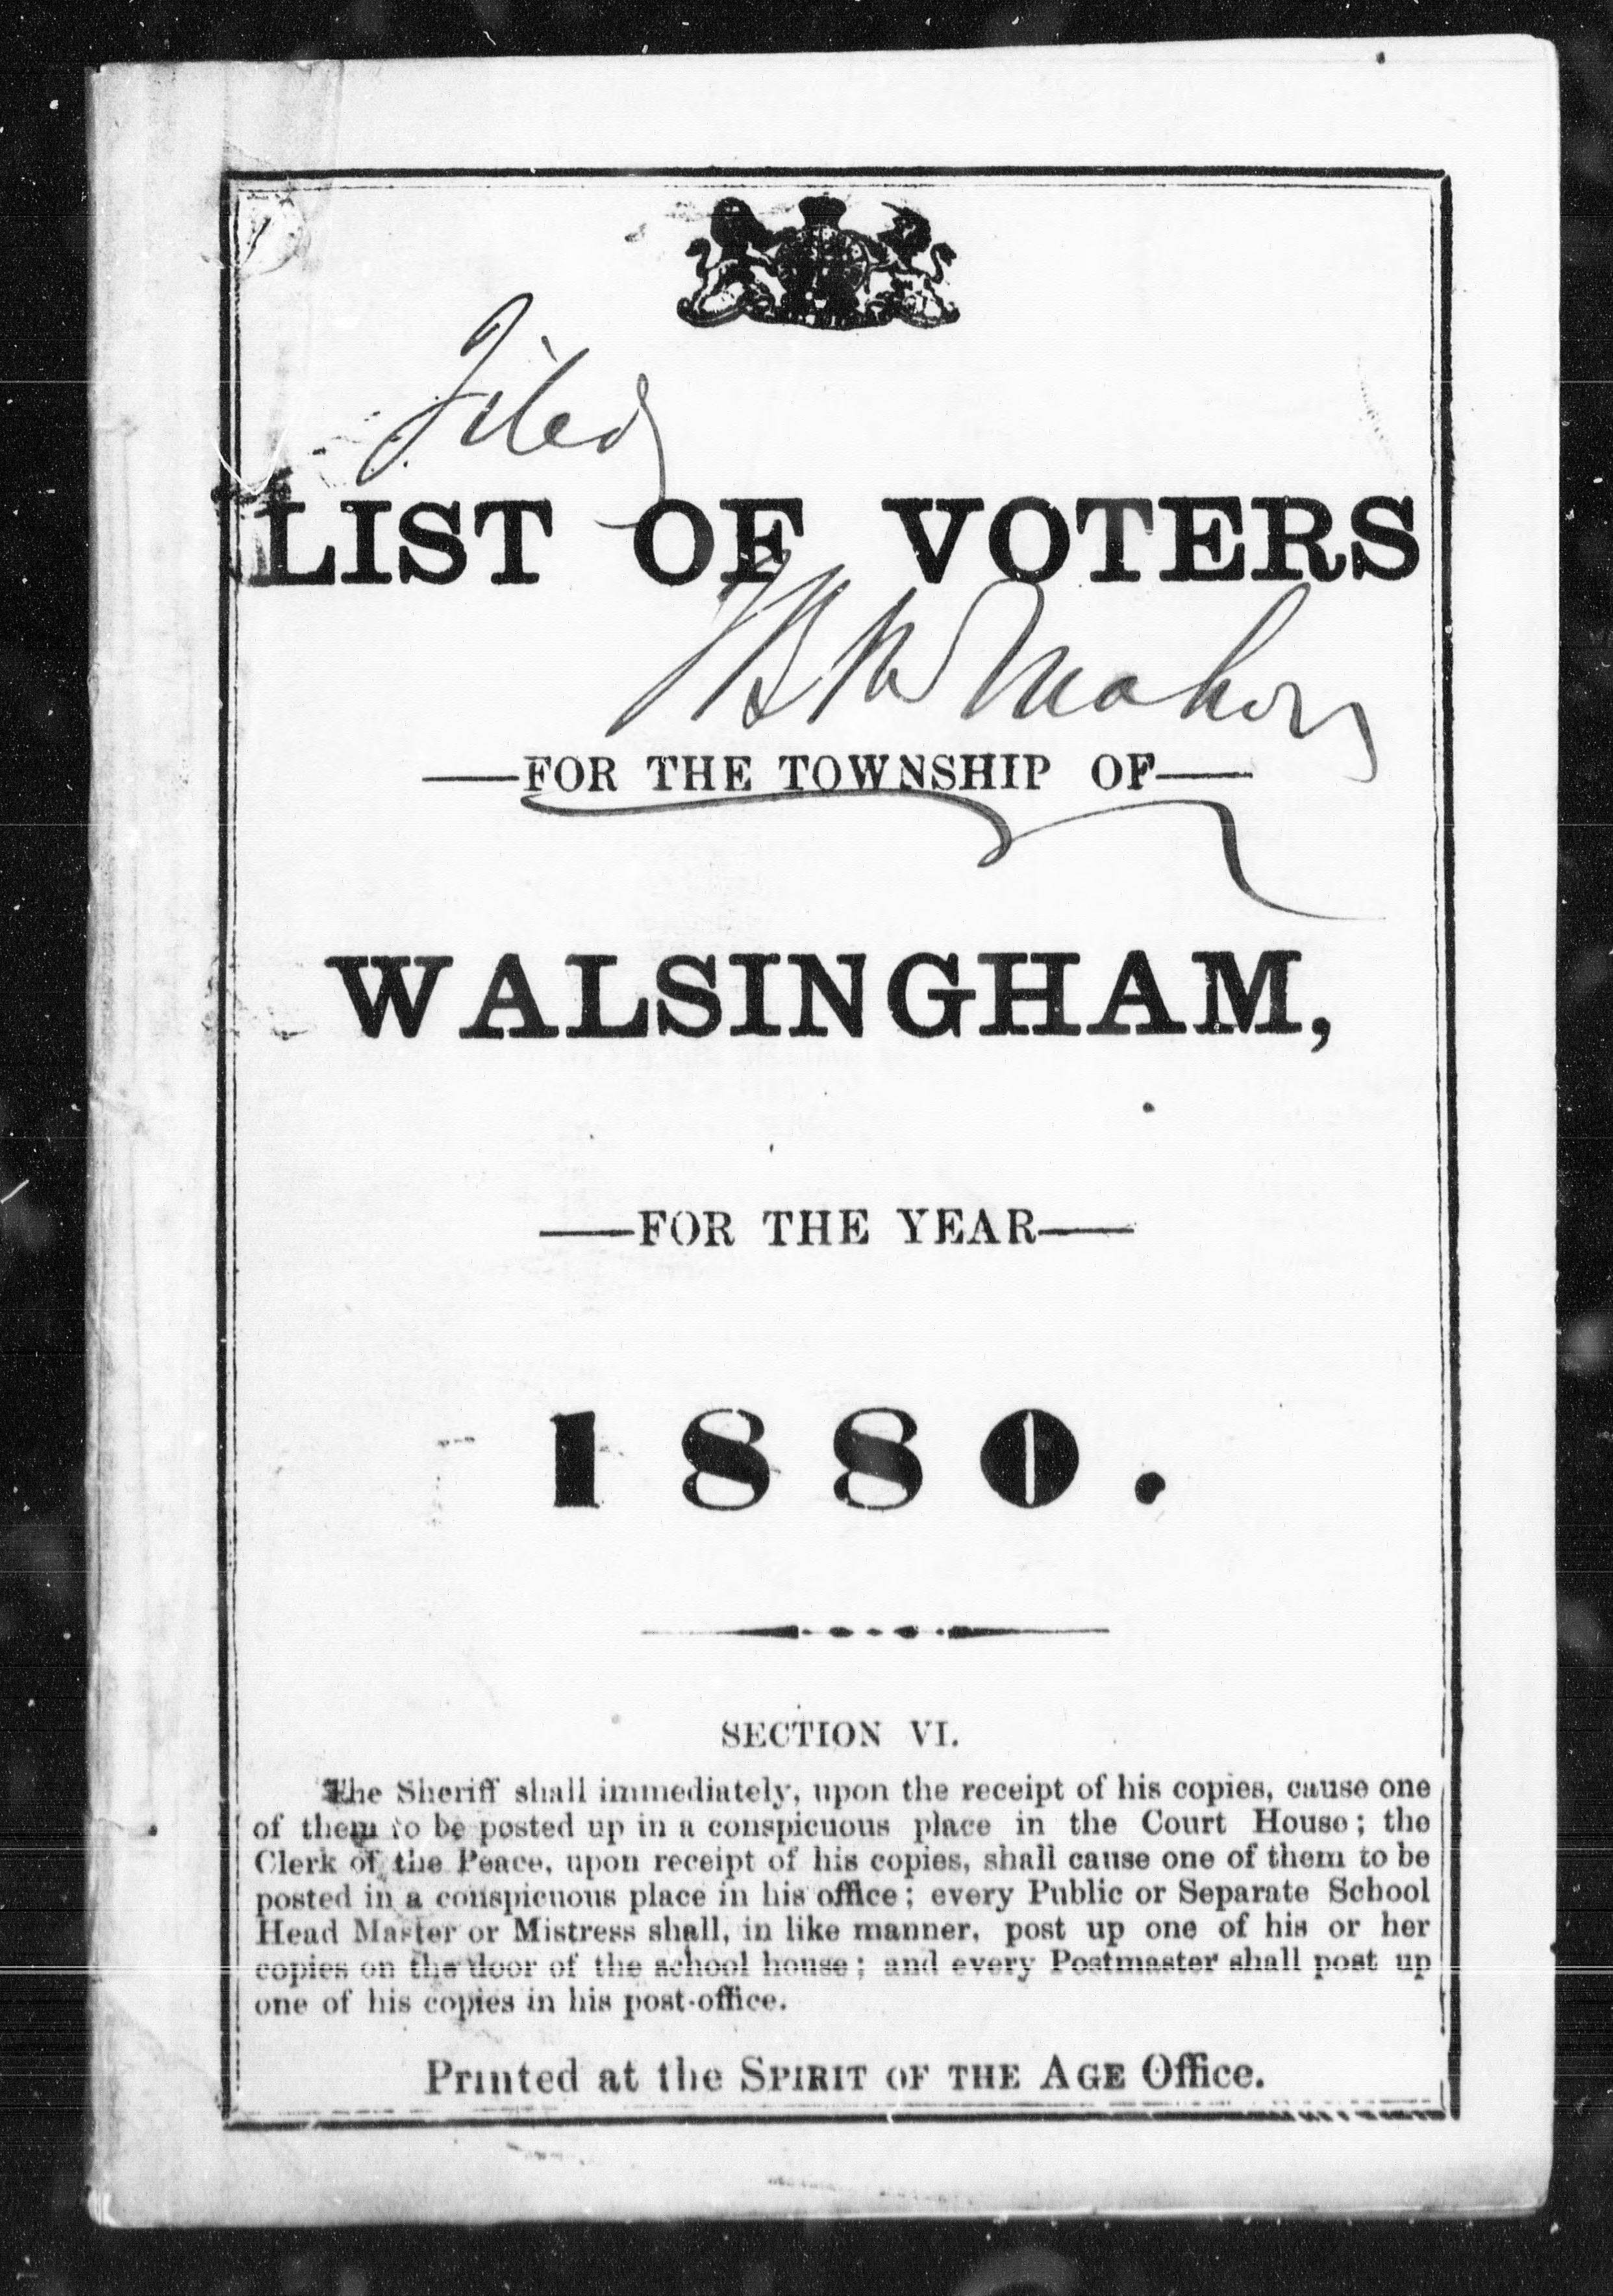 Filed
LIST OF VOTERS
—FOR THE TOWNSHIP OF—
WALSINGHAM,
—FOR THE YEAR—
1880.
SECTION VI.
The Sheriff shall immediately, upon the receipt of his copies, cause one
of them to be posted up in a conspicuous place in the Court House; the
Clerk of the Peace, upon receipt of his copies, shall cause one of them to be
posted in a conspicuous place in his office; every Public or Separate School
Head Master or Mistress shall, in like manner, post up one of his or her
copies on the door of the school house; and every Postmaster shall post up
one of his copies in his post-office.
Printed at the SPIRIT OF THE AGE Office.